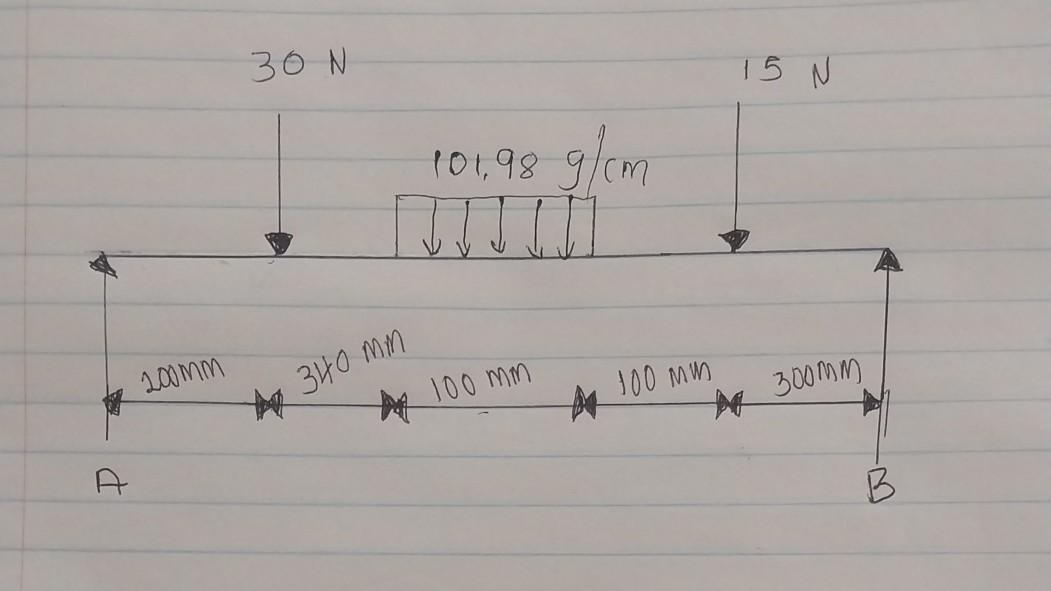 30 N
15 N
101,98 g/cm
200mm
340 mm
100 mm
100 mm
300mm
A
B